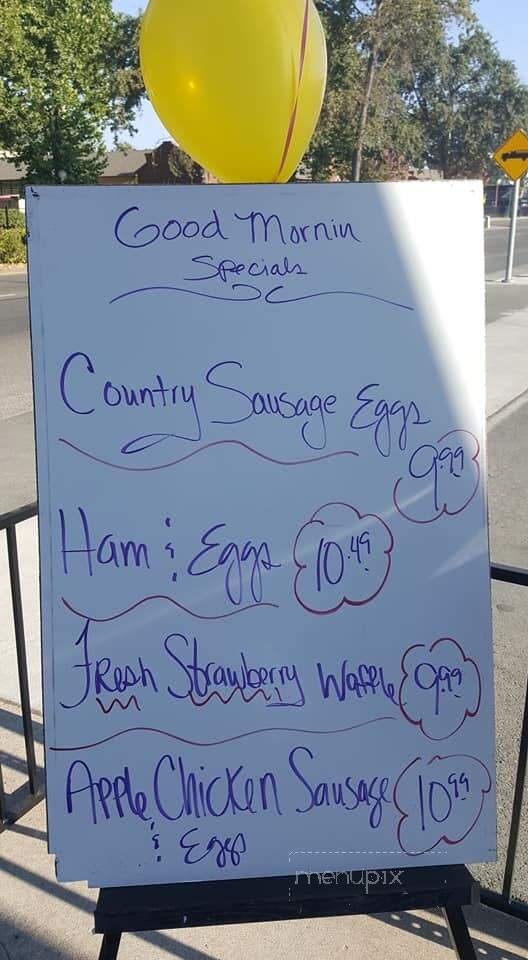 Good Mornin
Specials
Country Sausage Eggs
9.99
Ham & Eggs 10.49
Fresh Strawberry Waffle 9.99
Apple Chicken Sausage 10.99
& Eggs
menupix